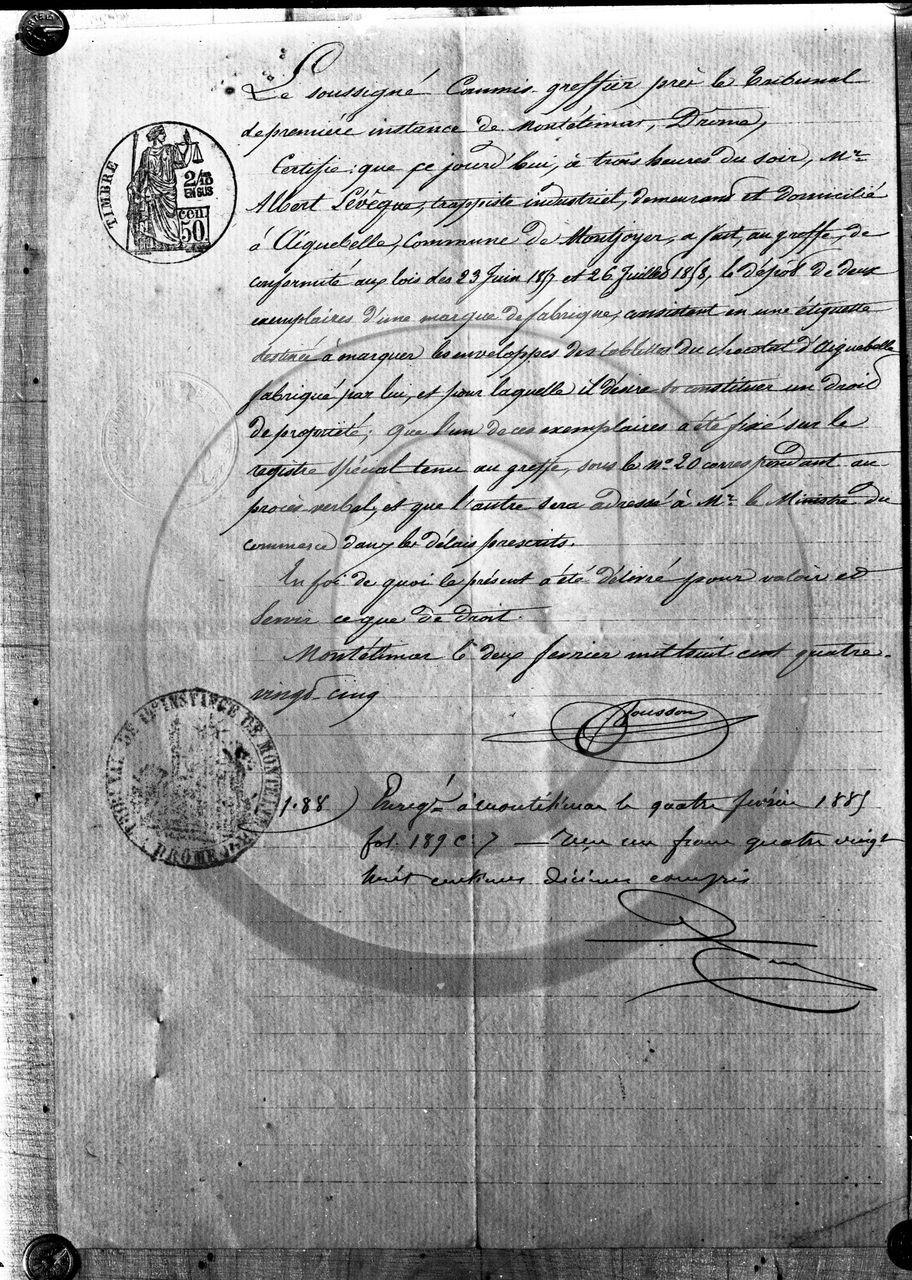 Le soussigné Commis-greffier près le Tribunal
de première instance de Montélimar, Drôme,
TIMBRE
2/10
EN SUS
50
Certifie: que ce jourd'hui, à trois heures du soir, Mr.
Albert Lévêque, trappiste industriel, demeurant et domicilié
à Aiguebelle, Commune de Montjoyer, a fait, au greffe, de
conformité aux lois des 23 Juin 1857 et 26 Juillet 1858, le dépôt de deux
exemplaires d'une marque de fabrique, consistant en une étiquette
destinée à marquer les enveloppes des tablettes du chocolat d'Aiguebelle
fabriqué par lui, et pour laquelle il désire se constituer un droit
de propriété; que l'un de ces exemplaires a été fixé sur le
registre spécial tenu au greffe, sous le no. 20 correspondant au
procès verbal, et que l'autre sera adressé à Mr. le Ministre du
commerce dans les délais prescrits.
En foi de quoi le présent a été délivré pour valoir et
servir ce que de droit.
Montélimar le deux février mil huit cent quatre-
vingt-cinq
Pousson
TRIBUNAL DE 1re INSTANCE DE MONTELIMAR
DRÔME
1.88 Enregé à Montélimar le quatre février 1885
fol. 189 c. 7 — reçu un franc quatre vingt
huit centimes décimes compris